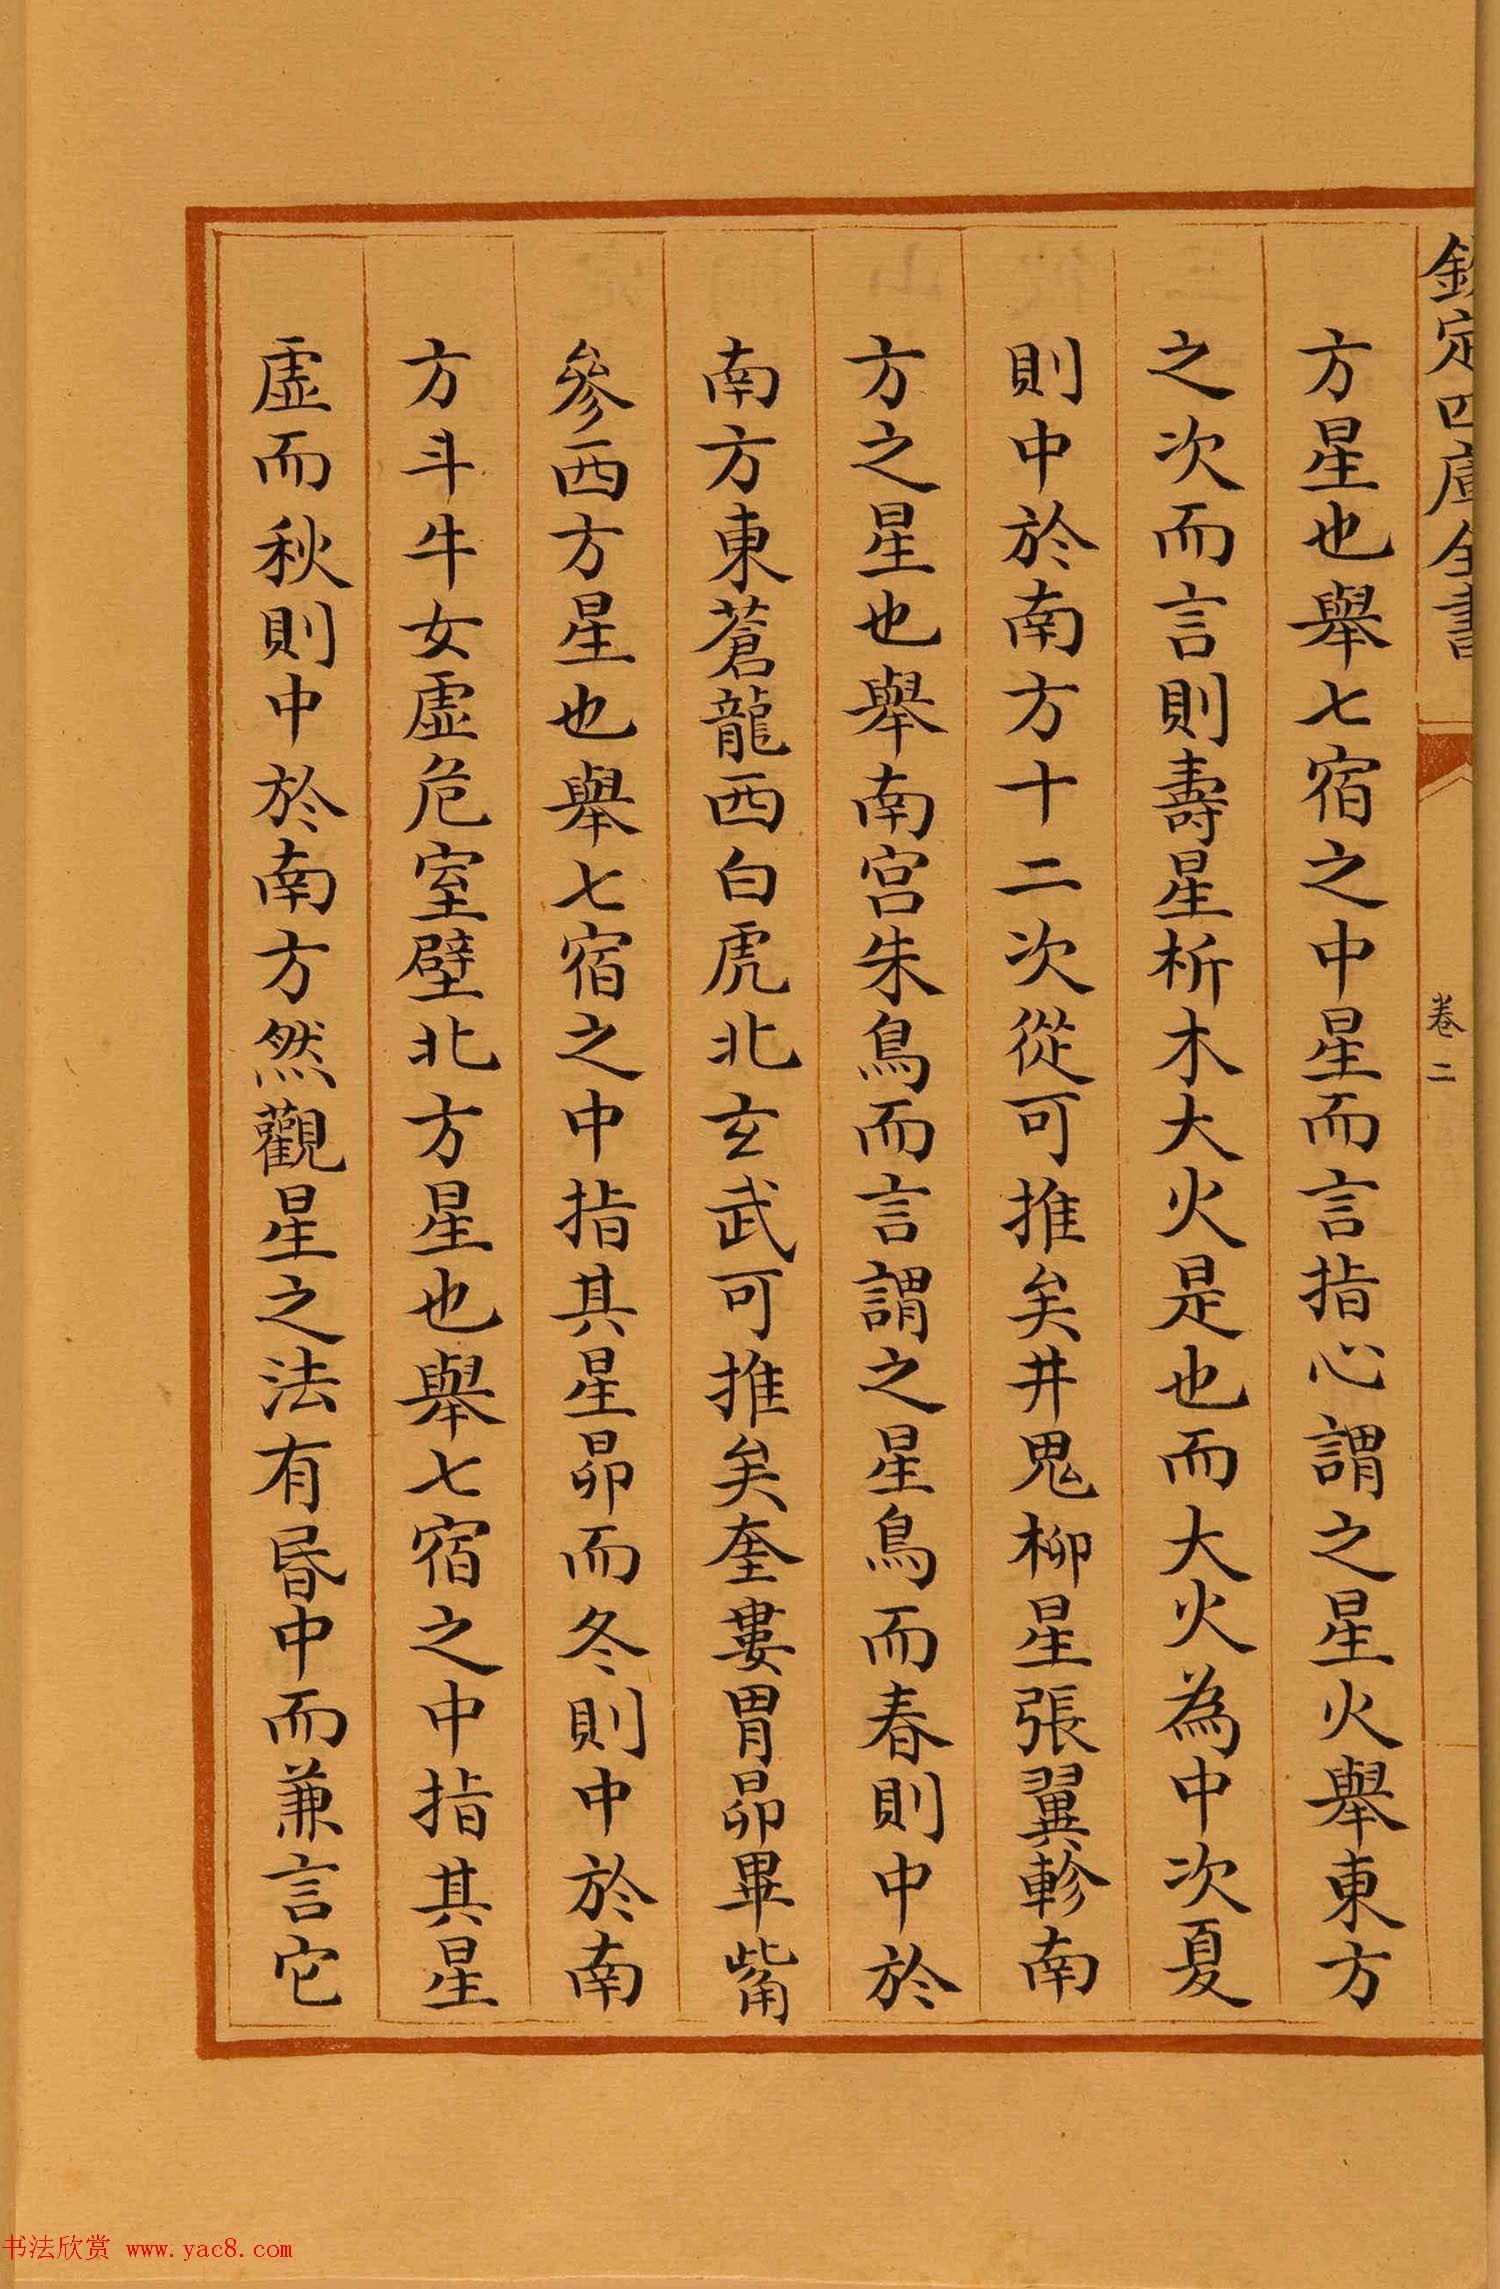 欽定四庫全書
卷二
方星也舉七宿之中星而言指心謂之星火舉東方
之次而言則壽星析木大火是也而大火為中次夏
則中於南方十二次從可推矣井鬼柳星張翼軫南
方之星也舉南宮朱鳥而言謂之星鳥而春則中於
南方東蒼龍西白虎北玄武可推矣奎婁胃昴畢觜
參西方星也舉七宿之中指其星昴而冬則中於南
方斗牛女虛危室壁北方星也舉七宿之中指其星
虛而秋則中於南方然觀星之法有昬中而兼言它
书法欣赏 www.yac8.com